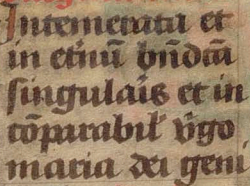 Intemerata et
in et̾nū bn̄dc̄ta
singulaīs et in
cōparabil' v̾go
maria dei geni